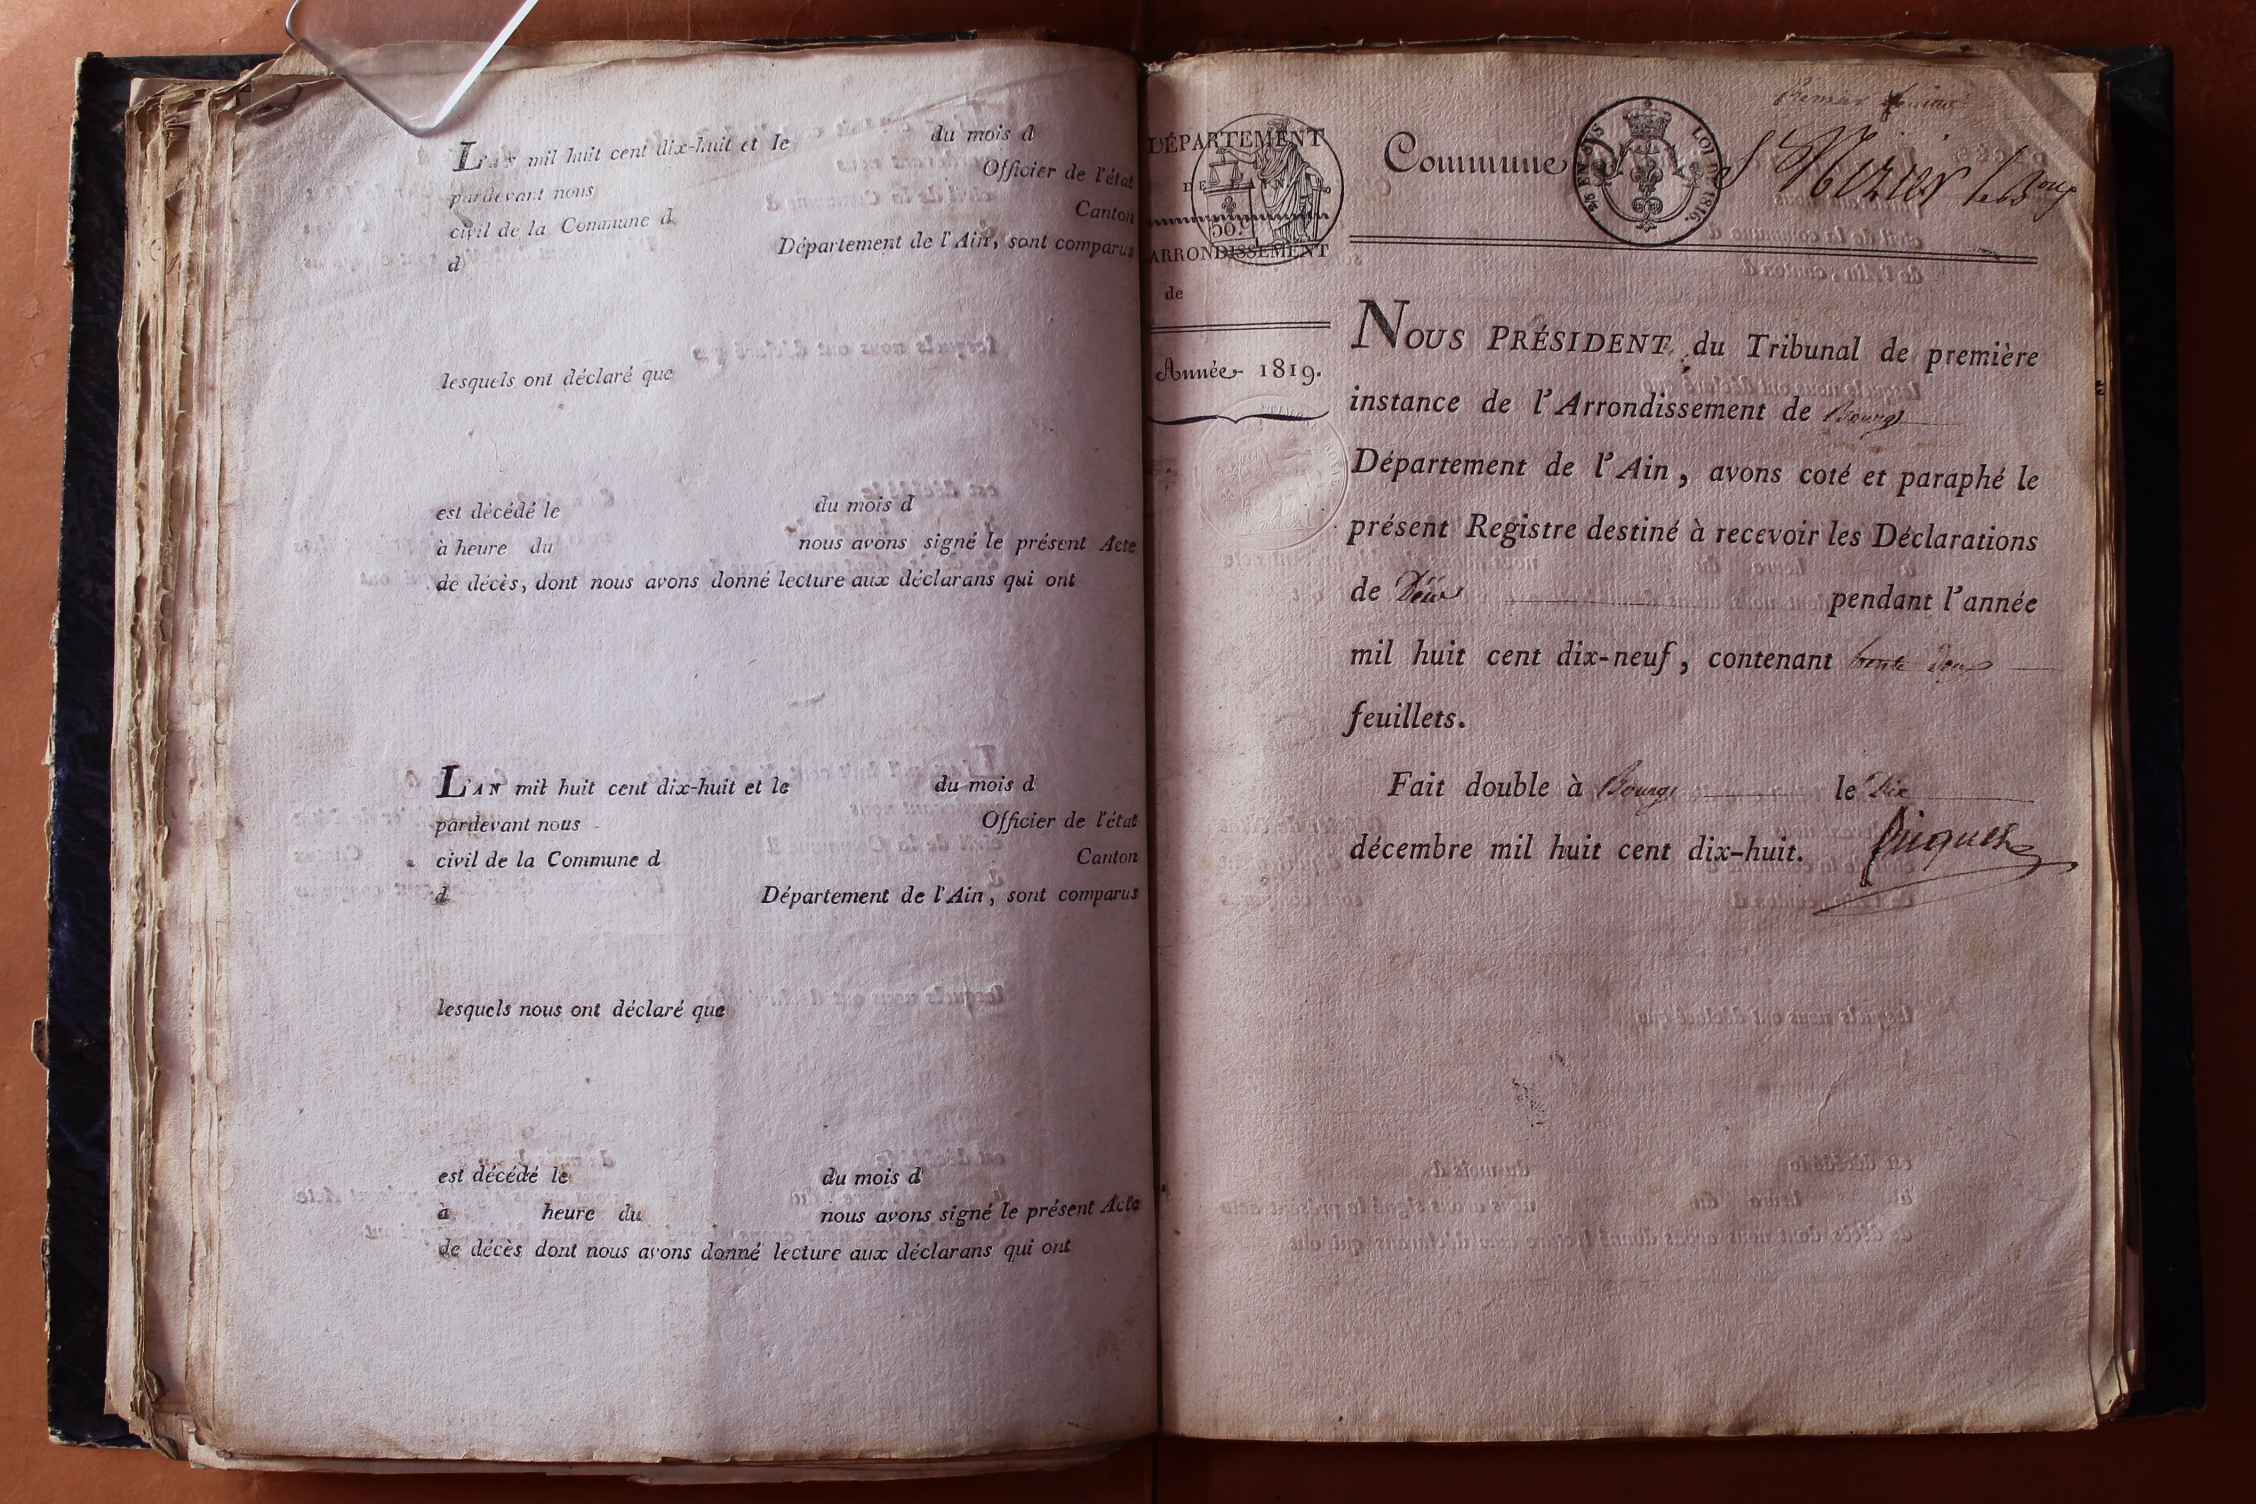 L'AN mil huit cent dix-huit et le du mois d
pardevant nous Officier de l'état
civil de la Commune d Canton
d Département de l'Ain, sont comparus
lesquels ont déclaré que
est décédé le du mois d
à heure du nous avons signé le présent Acte
de décès, dont nous avons donné lecture aux déclarans qui ont
L'AN mil huit cent dix-huit et le du mois d
pardevant nous Officier de l'état
civil de la Commune d Canton
d Département de l'Ain, sont comparus
lesquels nous ont déclaré que
est décédé le du mois d
à heure du nous avons signé le présent Acte
de décès dont nous avons donné lecture aux déclarans qui ont
DÉPARTEMENT
DE L'AIN
50c
ARRONDISSEMENT
de
Année 1819.
premier feuillet
Commune St Nizier le Boux
LOI DE 1816.
NOUS PRÉSIDENT du Tribunal de première
instance de l'Arrondissement de Bourg
Département de l'Ain, avons coté et paraphé le
présent Registre destiné à recevoir les Déclarations
de Décès pendant l'année
mil huit cent dix-neuf, contenant trente deux
feuillets.
Fait double à Bourg le Dix
décembre mil huit cent dix-huit.